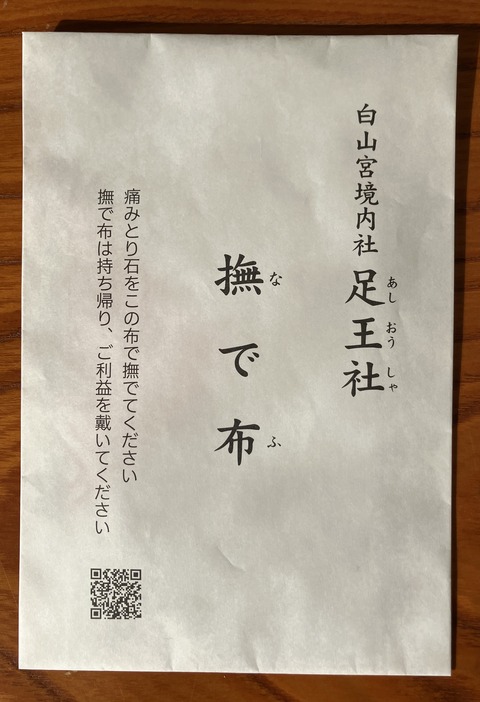 白山宮境内社 足王社
あし おう しゃ
撫で布
な ふ
痛みとり石をこの布で撫でてください
撫で布は持ち帰り、ご利益を戴いてください